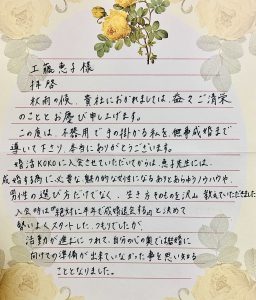 工藤恵子様
拝啓
秋雨の候、貴社におかれましては、益々ご清栄
のこととお慶び申し上げます。
この度は、不器用で手の掛かる私を、無事成婚まで
導いて下さり、本当にありがとうございます。
婚活KOKOに入会させていただいてからは、恵子先生には、
成婚する為に必要な、魅力的な女性になるありとあらゆるノウハウや、
男性の選び方だけでなく、生き方そのものを沢山教えていただきました。
入会時は『絶対に半年で成婚退会する』と決めて
勢いよくスタートしたつもりでしたが、
活動が進むにつれて、自分の心の奥では結婚に
向けての準備が出来ていなかった事を思い知る
こととなりました。